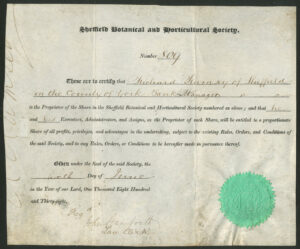 Sheffield Botanical and Horticultural Society.
Number 809
These are to certify that Richard of Sheffield
in the County of York Bank Manager
is the Proprietor of the Share in the Sheffield Botanical and Horticultural Society numbered as above; and that he
and his Executors, Administrators, and Assigns, as the Proprietor of such Share, will be entitled to a proportionate
Share of all profits, privileges, and advantages in the undertaking, subject to the existing Rules, Orders, and Conditions
of the said Society, and to any Rules, Orders, or Conditions to be hereafter made in pursuance thereof.
Given under the Seal of the said Society, the
Day of June
in the Year of our Lord, One Thousand Eight Hundred
and Thirty-eight.